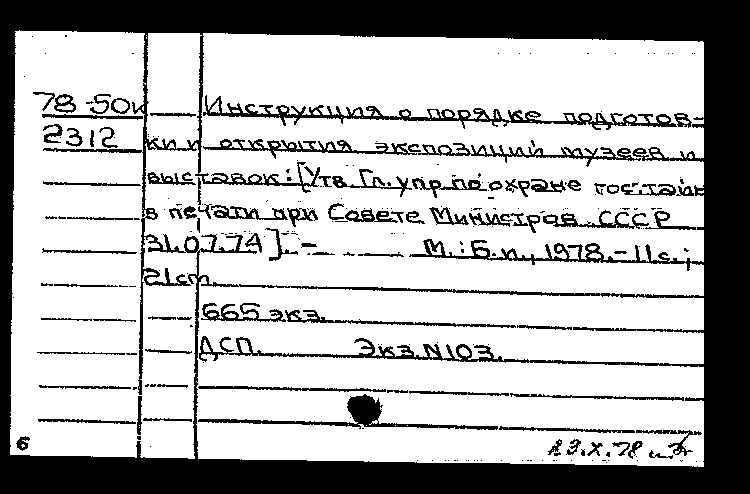 78-50к Инструкция о порядке подготов-
2312 ки и открытия экспозиций музеев и
выставок: [Утв. Гл. упр. по охране гос. тайн
в печати при Совете Министров СССР
31.07.74]. - М.: Б.и., 1978. - 11 с.;
21 cm.
665 экз.
ДСП. Экз. N 103.
6 23.X.78